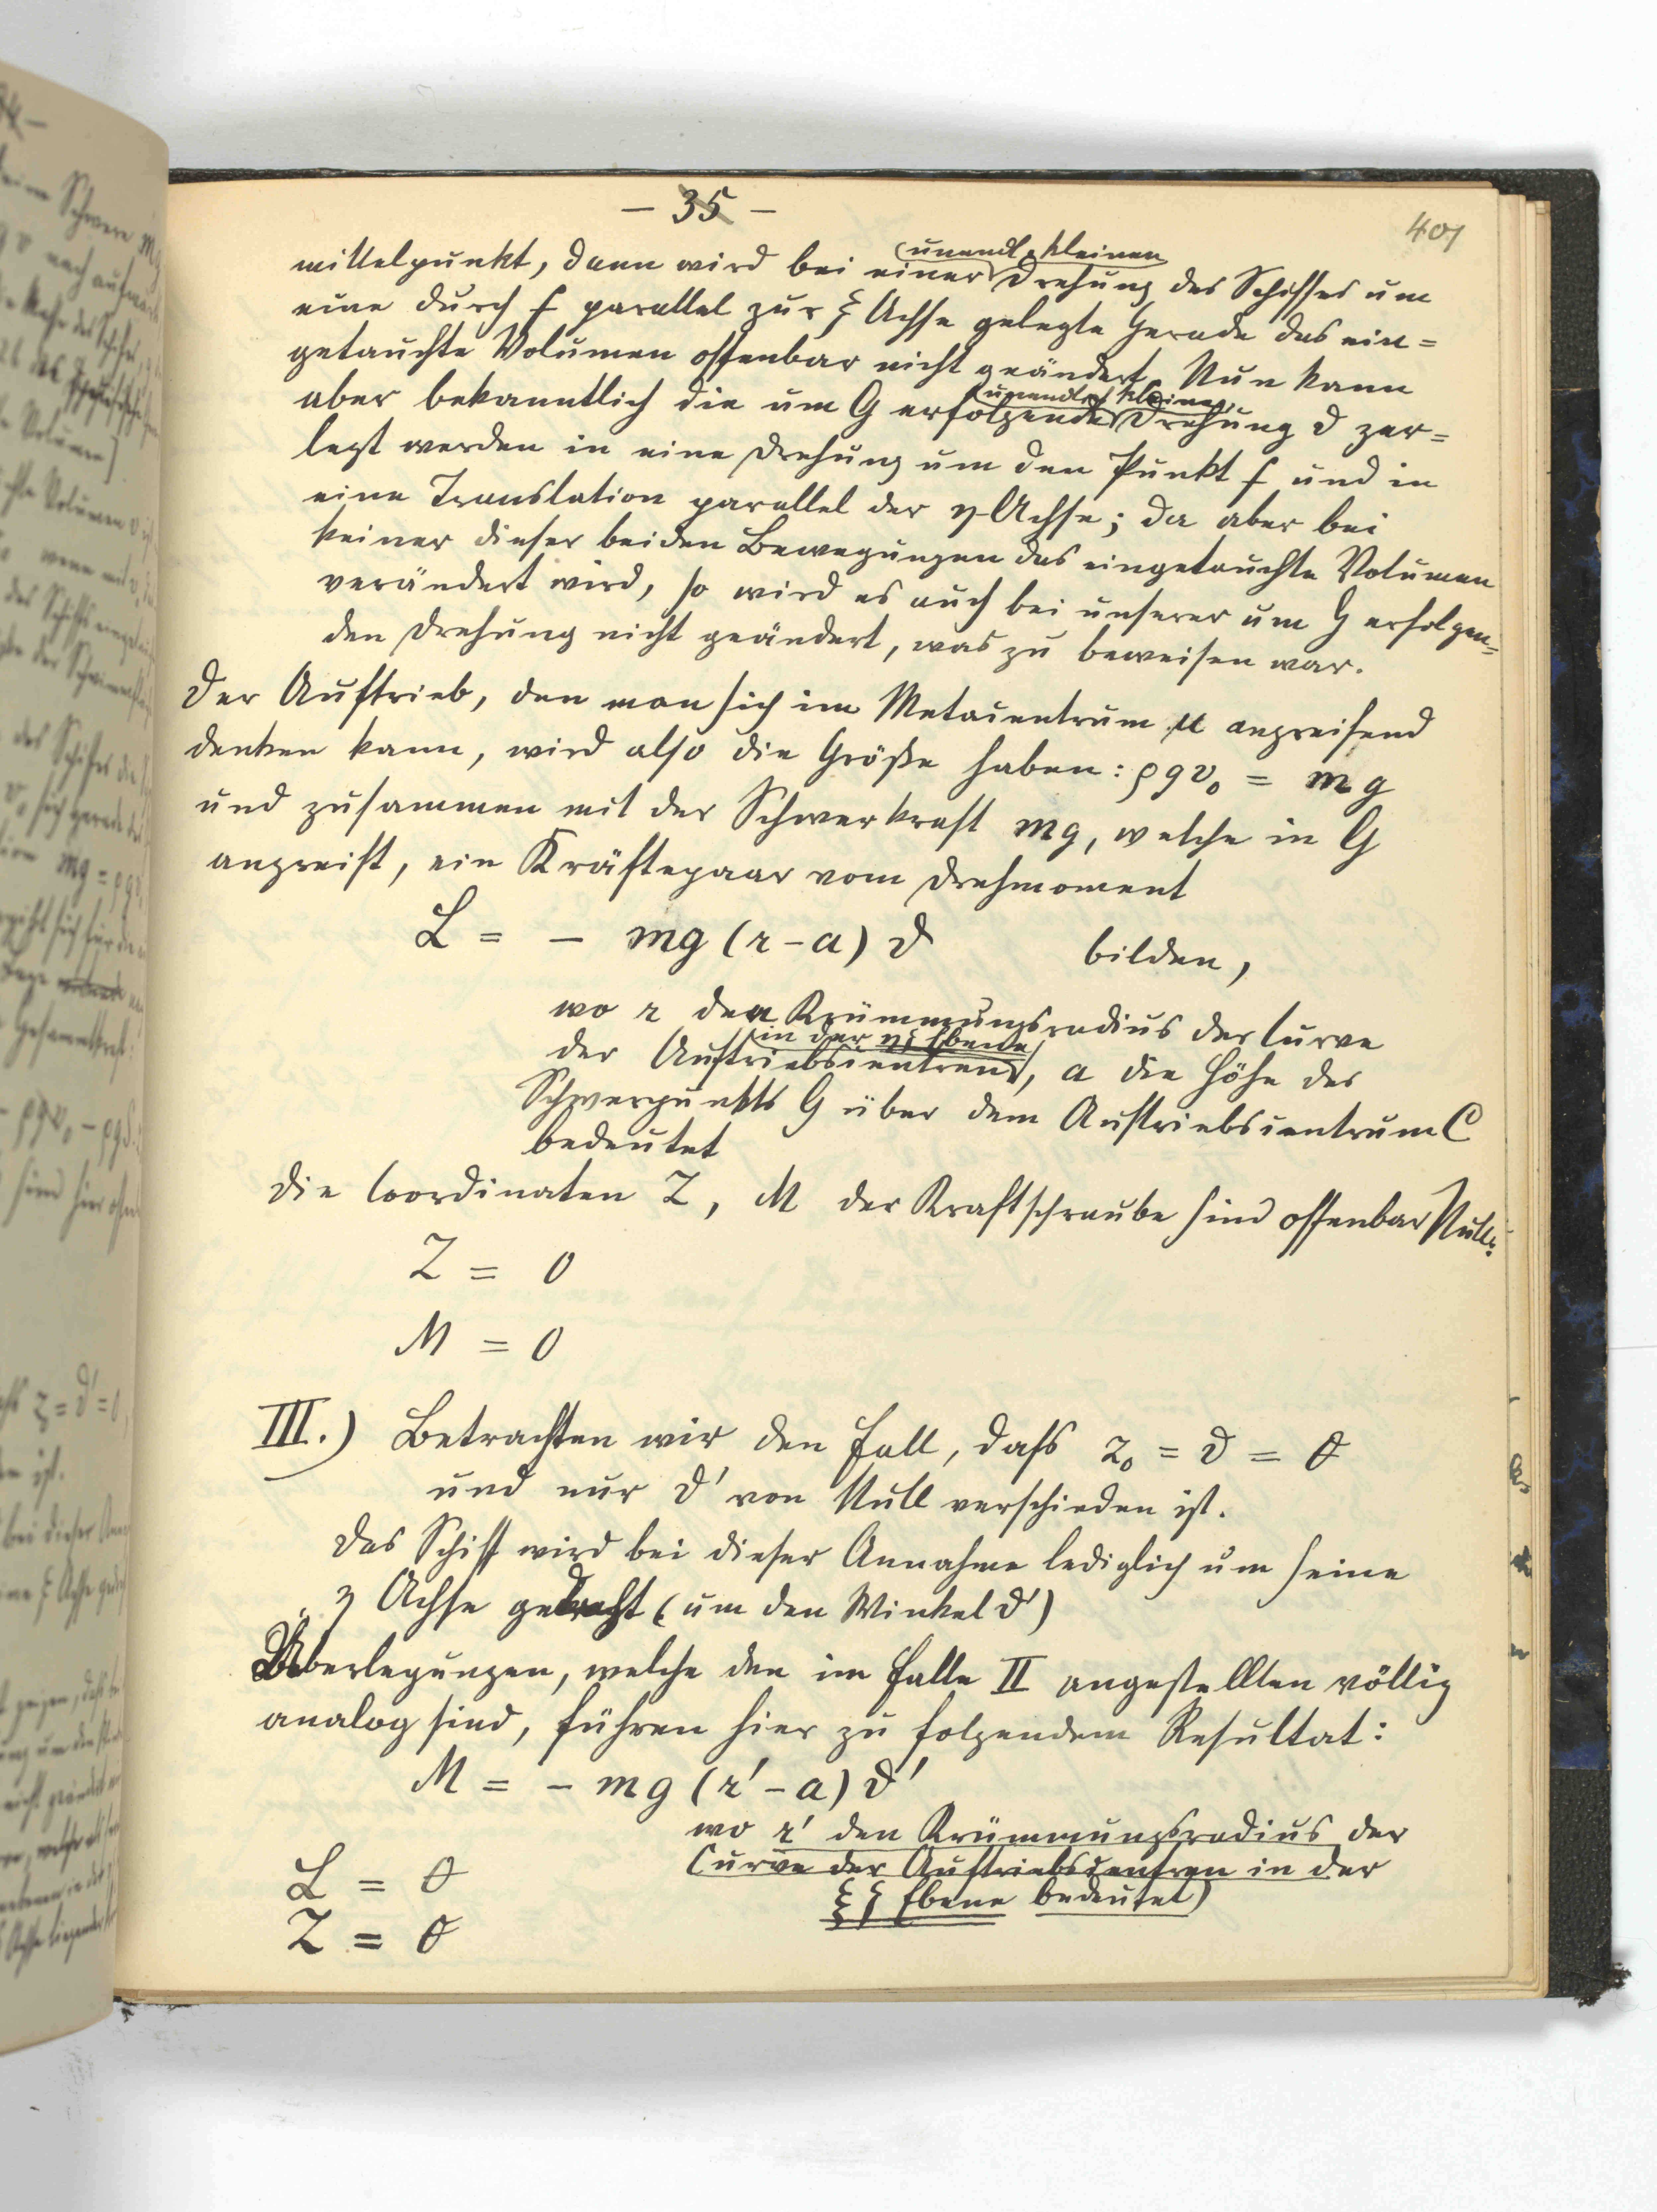 - 35 -
407
mittelpunkt, dann wird bei einer unendl. kleinen Drehung des Schiffes um
eine durch f parallel zur ξ Achse gelegte Gerade das ein=
getauchte Volumen offenbar nicht geändert. Nun kann
aber bekanntlich die um G erfolgende unendlich kleine Drehung ϑ zer=
legt werden in eine Drehung um den Punkt f und in
eine Translation parallel der η Achse; da aber bei
keiner dieser beiden Bewegungen das eingetauchte Volumen
verändert wird, so wird es auch bei unserer um G erfolgen=
den Drehung nicht geändert, was zu beweisen war.
Der Auftrieb, den man sich im Metacentrum μ angreifend
denken kann, wird also die Größe haben: ρgv₀ = mg
und zusammen mit der Schwerkraft mg, welche in G
angreift, ein Kräftepaar vom Drehmoment
L = - mg (r-a) ϑ bilden,
wo r den Krümmungsradius der Curve
der Auftriebscentren in der ηζ Ebene, a die Höhe des
Schwerpunkts G über dem Auftriebscentrum C
bedeutet
Die Coordinaten Z, M der Kraftschraube sind offenbar Null:
Z = 0
M = 0
III.) Betrachten wir den Fall, dass z₀ = ϑ = 0
und nur ϑ' von Null verschieden ist.
Das Schiff wird bei dieser Annahme lediglich um seine
η Achse gedreht (um den Winkel ϑ')
Überlegungen, welche den im Falle II angestellten völlig
analog sind, führen hier zu folgendem Resultat:
M = - mg (r'-a) ϑ'
wo r' den Krümmungsradius der
Curve der Auftriebscentren in der
ξζ Ebene bedeutet)
L = 0
Z = 0